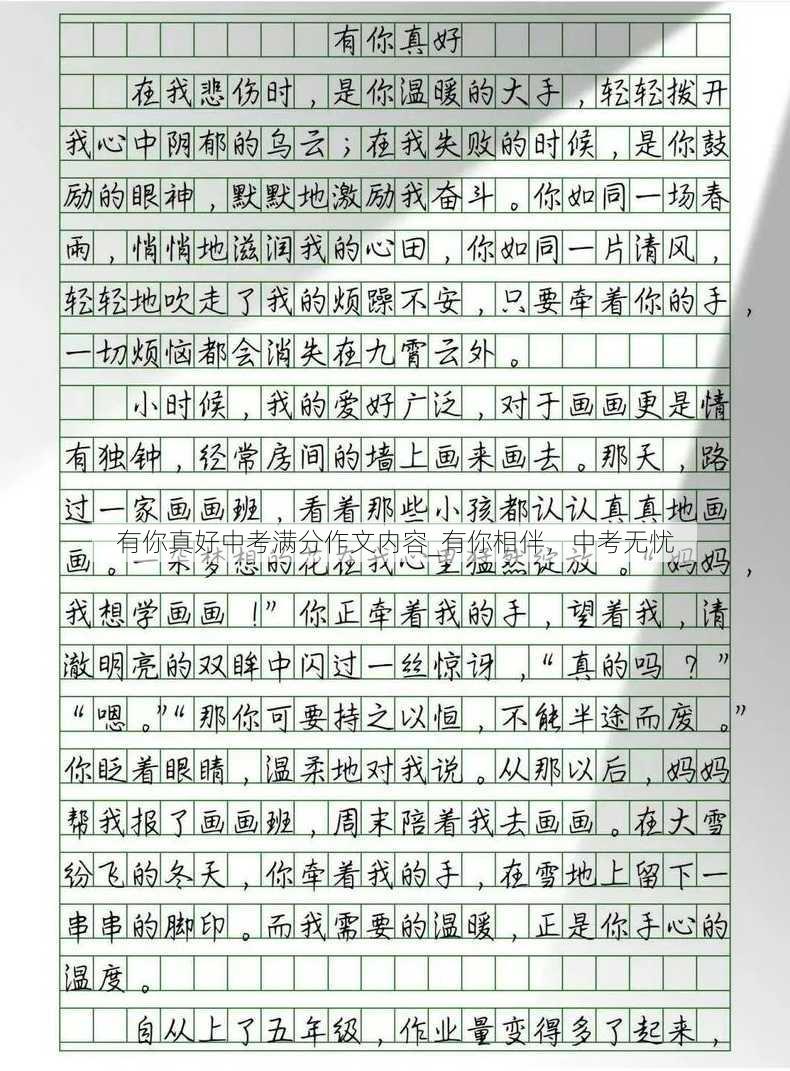 有你真好
在我悲伤时，是你温暖的大手，轻轻拨开
我心中阴郁的乌云；在我失败的时候，是你鼓
励的眼神，默默地激励我奋斗。你如同一场春
雨，悄悄地滋润我的心田，你如同一片清风，
轻轻地吹走了我的烦躁不安，只要牵着你的手，
一切烦恼都会消失在九霄云外。
小时候，我的爱好广泛，对于画画更是情
有独钟，经常房间的墙上画来画去。那天，路
过一家画画班，看着那些小孩都认认真真地画
有你真好中考满分作文内容_有你相伴，中考无忧
画。一朵梦想的花在我心里猛然绽放。“妈妈，
我想学画画！”你正牵着我的手，望着我，清
澈明亮的双眸中闪过一丝惊讶，“真的吗？”
“嗯。”“那你可要持之以恒，不能半途而废。”
你眨着眼睛，温柔地对我说。从那以后，妈妈
帮我报了画画班，周末陪着我去画画。在大雪
纷飞的冬天，你牵着我的手，在雪地上留下一
串串的脚印。而我需要的温暖，正是你手心的
温度。
自从上了五年级，作业量变得多了起来，